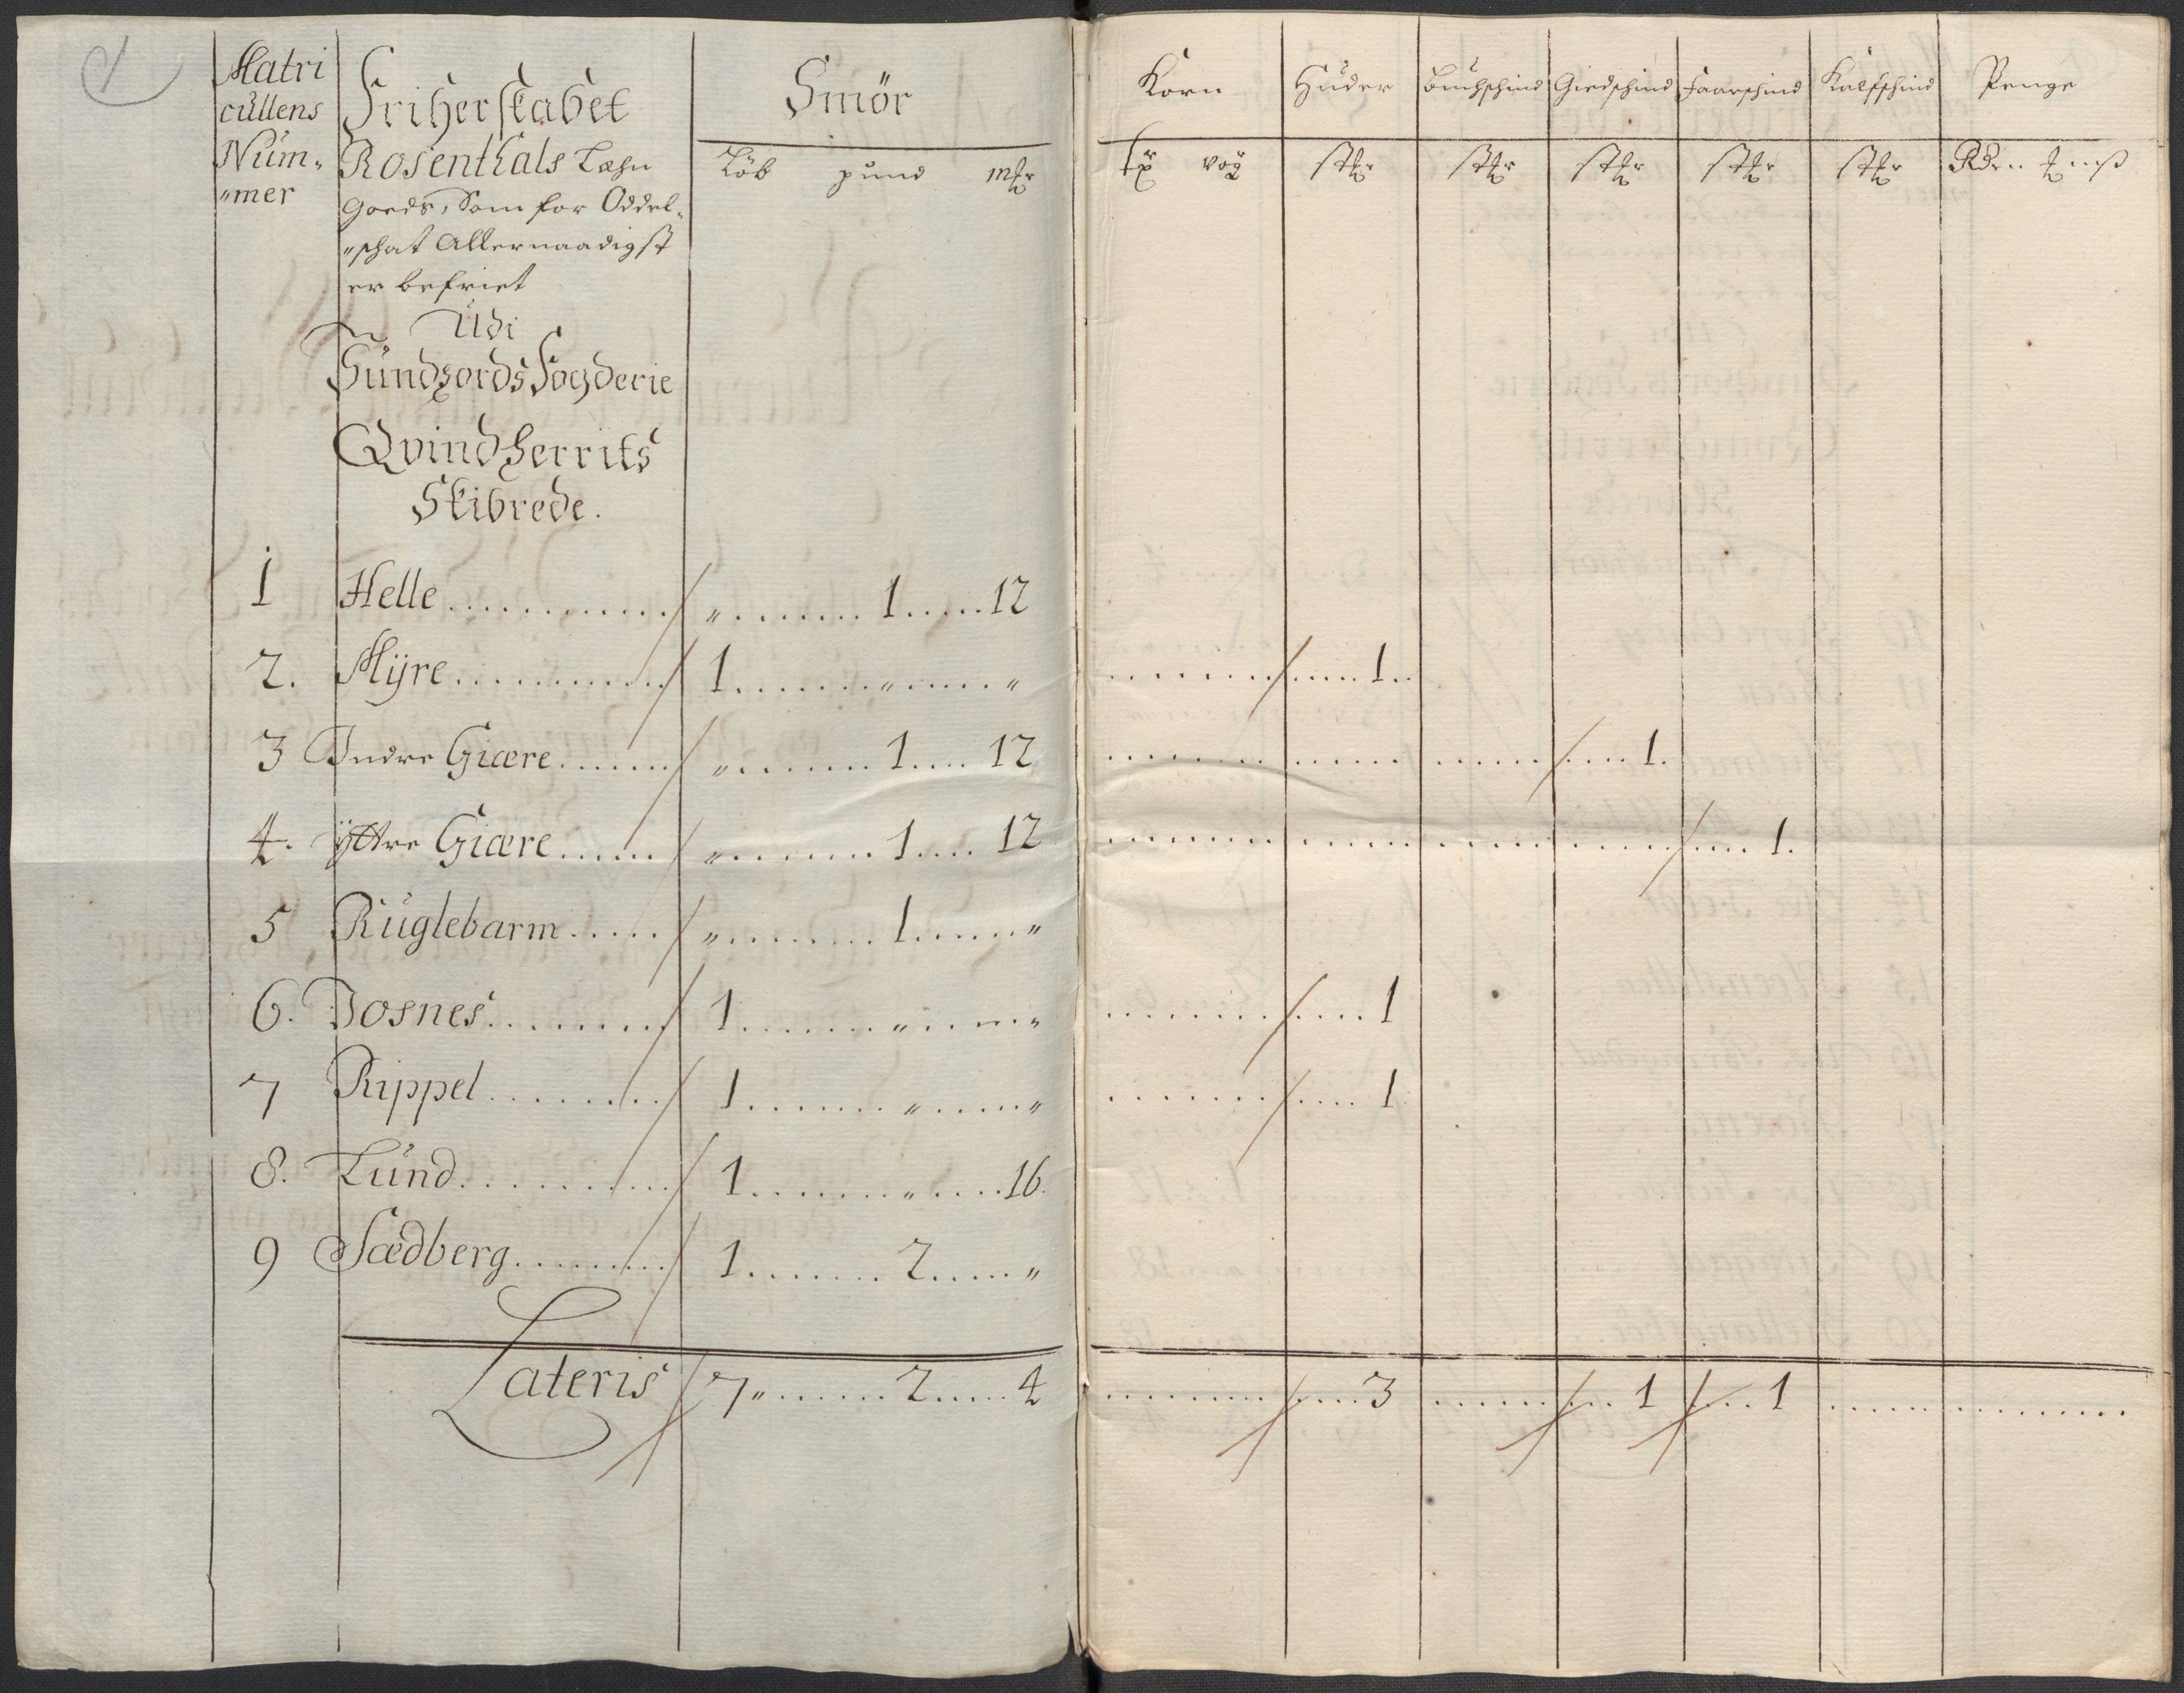 Matri
cullens
Num-
"mer
Friherskabet
Rosenthals Læhn
Goeds, Som for Oddel-
"schat Allernaadigst
er befriet
Udi
Sundhords Fogderie
Qvindherrits
Skibrede.
Smör
Löb pund mk
Korn Huder Buchschind Giedschind Faarschind Kalfschind Penge
1 Helle .......... " ...... 1 ..... 12
2. Mÿre .......... 1 ...... " ..... " ...... 1 ..
3 Indre Giære ...... " ...... 1 .... 12 ...... 1.
4. ÿttre Giære ...... " ...... 1 .... 12 ...... 1.
5 Ruglebarm ..... " ...... 1 ..... "
6. Josnes ........ 1 ...... " ..... " ...... 1
7 Rippel ........ 1 ...... " ..... " ...... 1
8. Lund ......... 1 ...... " ..... 16.
9 Sædberg ........ 1 ...... 2 ..... "
Lateris 7 " ...... 2 ..... 4 ...... 3 ...... 1 .... 1 ......